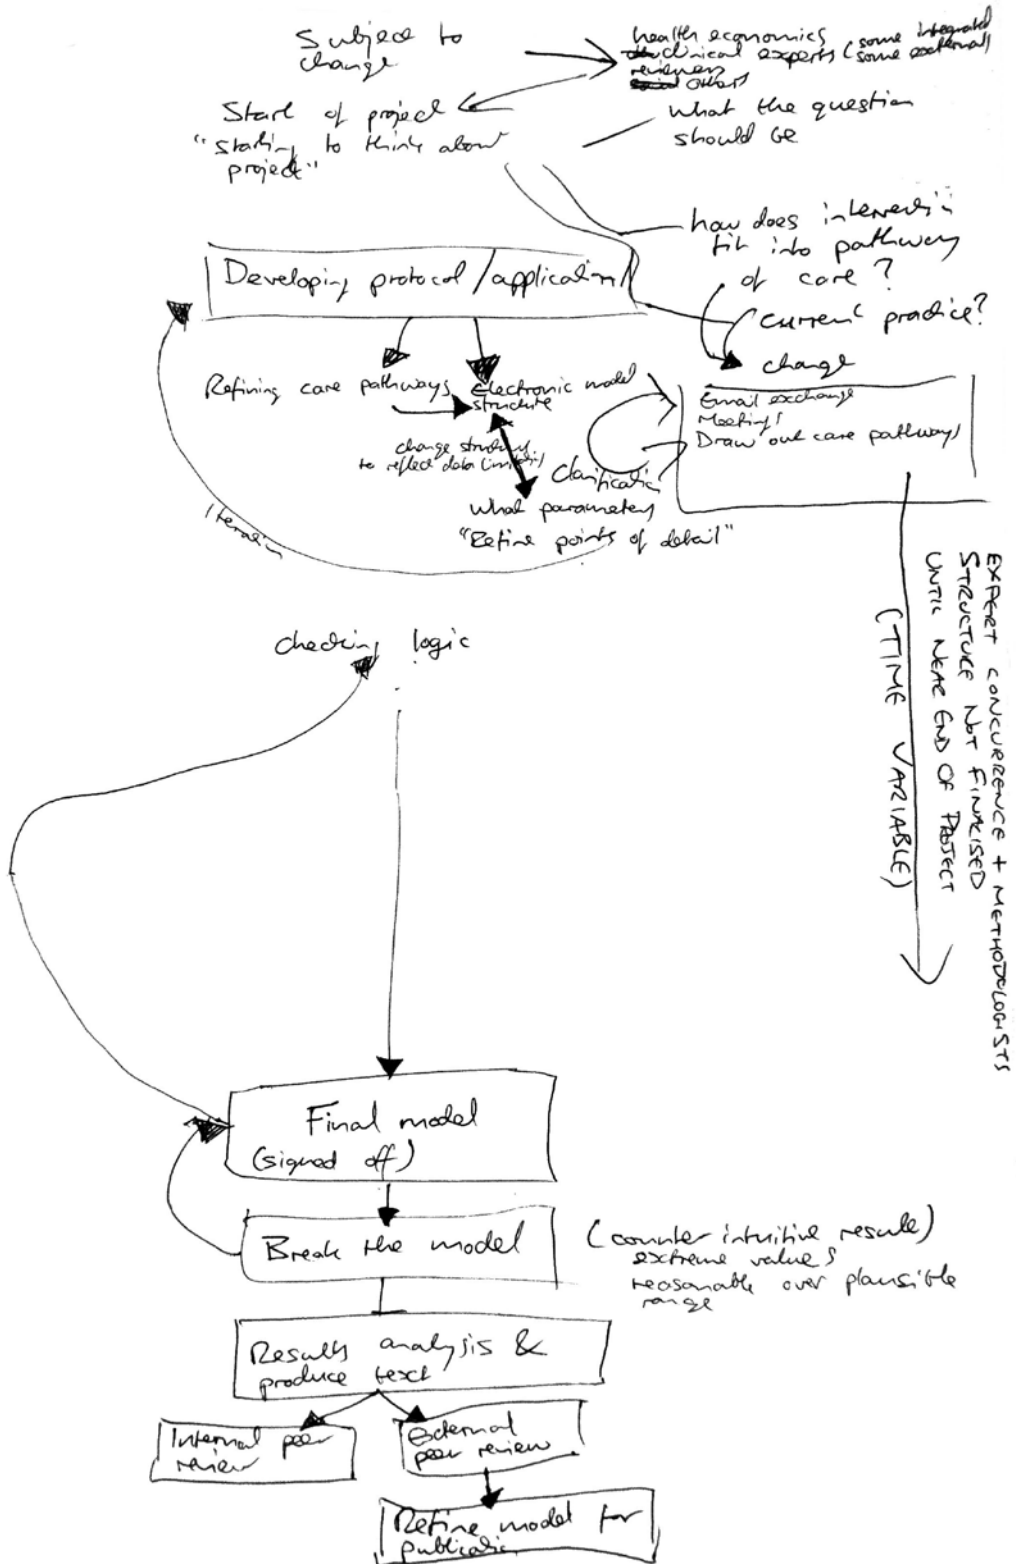 Subject to
change
health economics
clinical experts (some integrated
some external)
reviewers
others
Start of project
"starting to think about
project"
what the question
should be
how does interventi
fit into pathway
of care?
current practice?
change
Developing protocol/application
Refining care pathways
Electronic model
structure
Email exchange
Meetings
Draw out care pathways
change structure
to reflect data
Clarification
What parameters
"Refine points of detail"
Iteration
EXPERT CONCURRENCE + METHODOLOGISTS
STRUCTURE NOT FINALISED
UNTIL NEAR END OF PROJECT
(TIME VARIABLE)
checking logic
Final model
(signed off)
Break the model
(counter intuitive result)
extreme values
reasonable over plausible
range
Results analysis &
produce text
Internal peer
review
External
peer review
Refine model for
publication